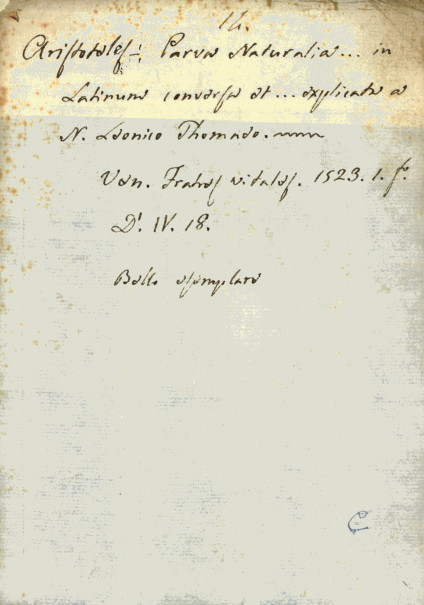 14.
Aristoteles: Parva Naturalia... in
Latinum conversa et... explicata a
N. Leonico Thomaeo.
Ven. Fratres vitales. 1523. 1. fo.
D'. IV. 18.
Bello esemplare
C